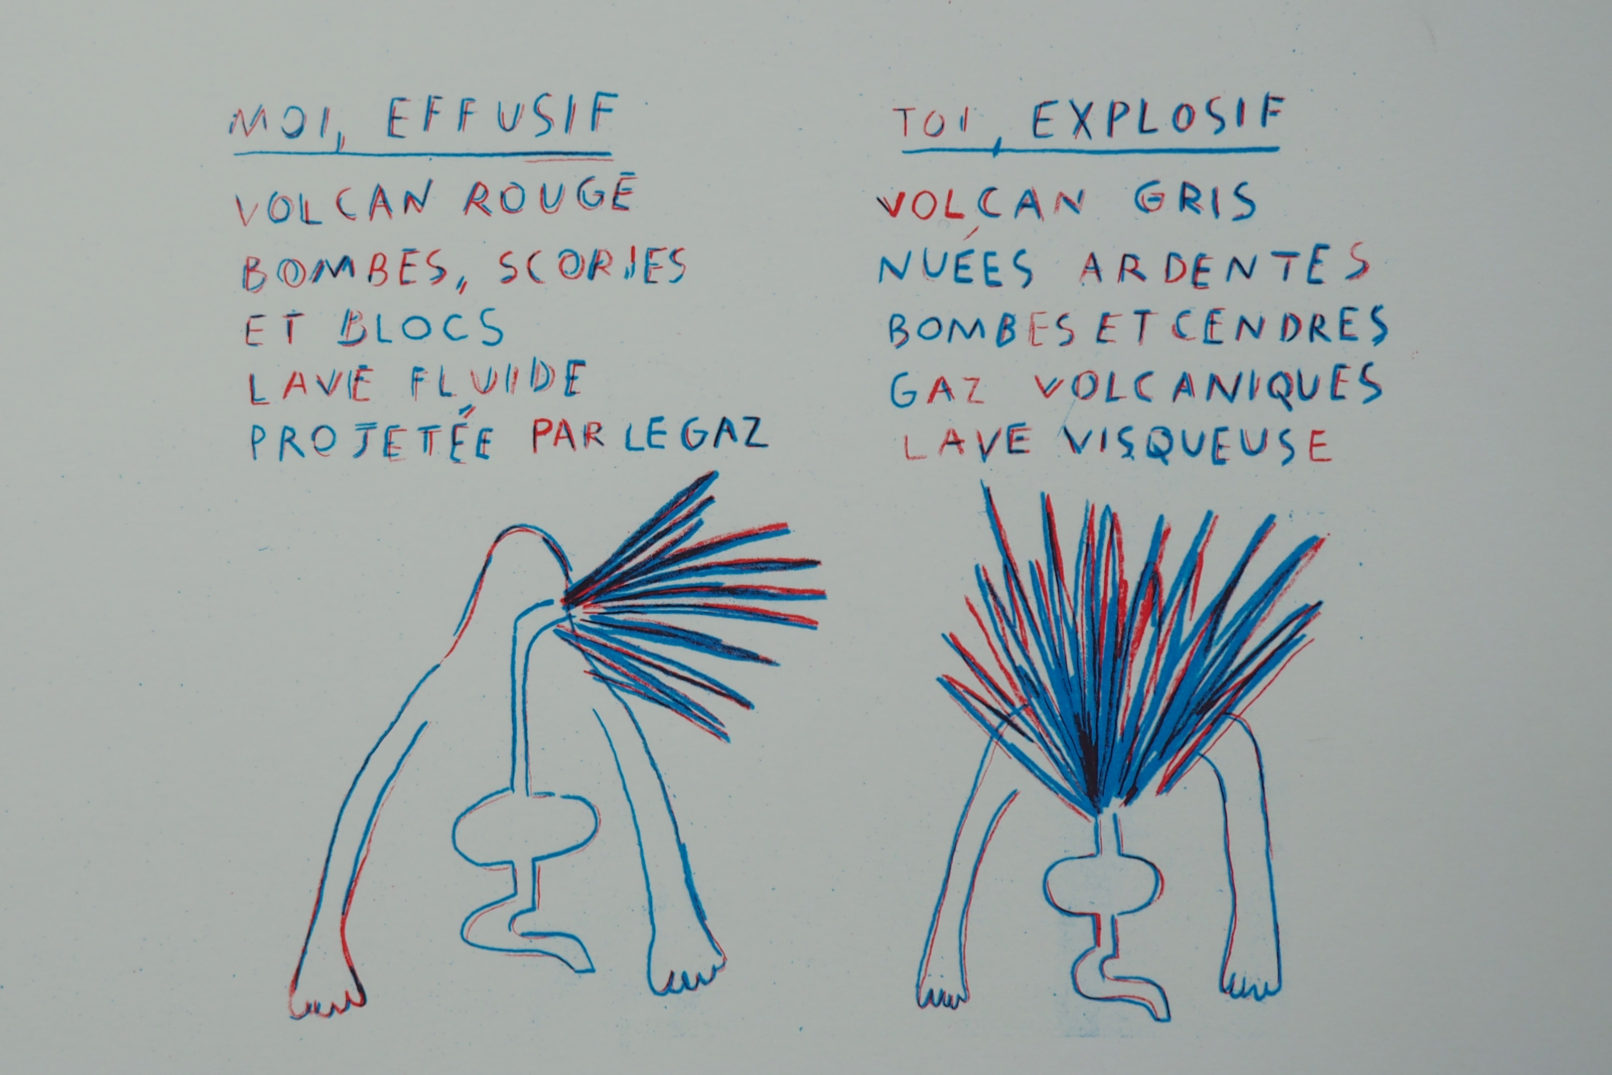 MOI, EFFUSIF
VOLCAN ROUGE
BOMBES, SCORIES
ET BLOCS
LAVE FLUIDE
PROJETÉE PAR LE GAZ
TOI, EXPLOSIF
VOLCAN GRIS
NUÉES ARDENTES
BOMBES ET CENDRES
GAZ VOLCANIQUES
LAVE VISQUEUSE